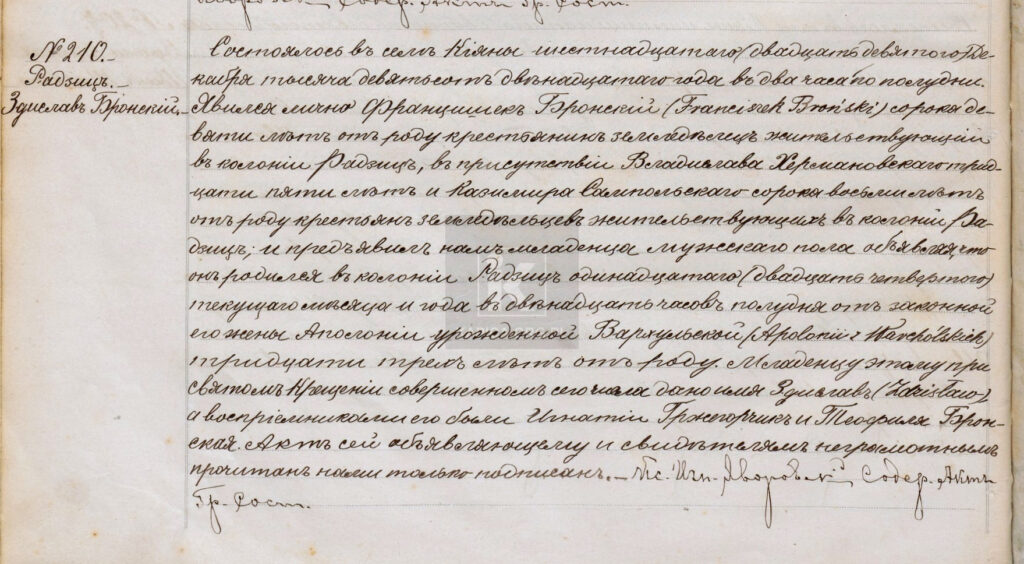 Содер. Актъ Гр. Сост.
№ 210.-
Радзицъ.-
Здиславъ Бронскій.-
Состоялось въ семъ Кіяны шестнадцатаго (двадцать девятого) Де-
кабря тысяча девятьсотъ двѣнадцатаго года въ два часа по полудни.
Явился лично Францишекъ Бронскій (Franciszek Broński) сорока де-
вяти лѣтъ отъ роду крестьянинъ земледѣлецъ жительствующій
въ колоніи Радзицъ, въ присутствіи Владислава Хермановскаго трид-
цати пяти лѣтъ и Казимира Сампольскаго сорока восьми лѣтъ
отъ роду крестьянъ земледѣльцевъ жительствующихъ въ колоніи Ра-
дзицъ; и предъявилъ намъ младенца мужскаго пола объявляя, что
онъ родился въ колоніи Радзицъ одинадцатаго (двадцать четвертого)
текущаго мѣсяца и года въ двѣнадцать часовъ полудня отъ законной
его жены Аполоніи урожденной Вархульской (Apolonii z Warchólskich)
тридцати трехъ лѣтъ отъ роду. Младенцу этому при
святомъ Крещеніи совершенномъ сего числа дано имя Здиславъ (Zdzisław),
а воспріемниками его были Игнатій Гржегорчикъ и Теофиля Брон-
ская. Актъ сей объявляющему и свидѣтелямъ неграмотнымъ
прочитанъ нами только подписанъ.- Кс. Яворовскій Содер. Актъ
Гр. Сост.